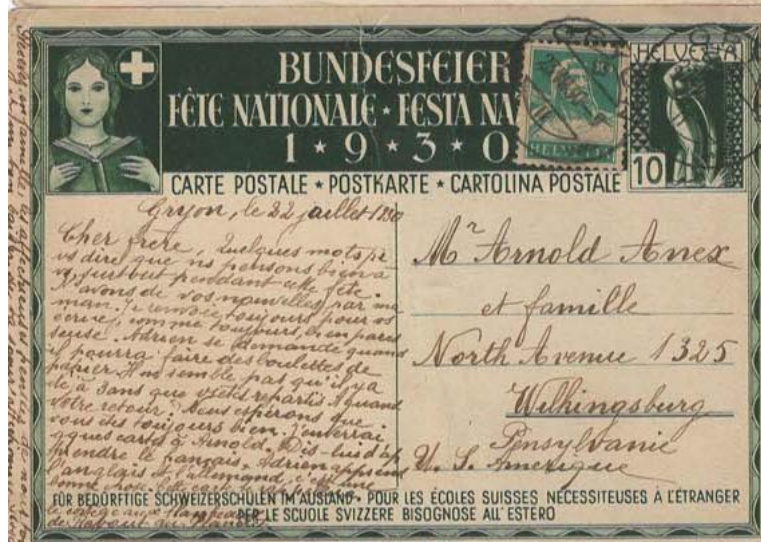 BUNDESFEIER
FÊTE NATIONALE ★ FESTA NA
1 ★ 9 ★ 3 ★ 0
HELVETIA
HELVETIA
10
CARTE POSTALE ★ POSTKARTE ★ CARTOLINA POSTALE
Gryon, le 22 juillet 1930
Cher frère, Quelques mots pr
vs dire que ns pensons bien à
vs, surtout pendant cette fête.
Ns avons de vos nouvelles par ma
man. Je renvoie toujours pour vs
écrire, comme toujours, bien pares
seuse. Adrien se demande quand
il pourra faire des boulettes de
papier. Il ne semble pas qu'il y a
déjà 3 ans que vs êtes repartis. A quand
votre retour? Nous espérons que
vous êtes toujours bien. J'enverrai
qques cartes à Arnold. Dis-lui d'ap
prendre le français. Adrien apprend
l'anglais et l'allemand, c'est une
bonne chose.
Mr Arnold Anex
et famille
North Avenue 1325
Wilkingsburg
Pensylvanie
U. S. Amerique
FÜR BEDÜRFTIGE SCHWEIZERSCHULEN IM AUSLAND · POUR LES ÉCOLES SUISSES NÉCESSITEUSES À L'ÉTRANGER
PER LE SCUOLE SVIZZERE BISOGNOSE ALL' ESTERO